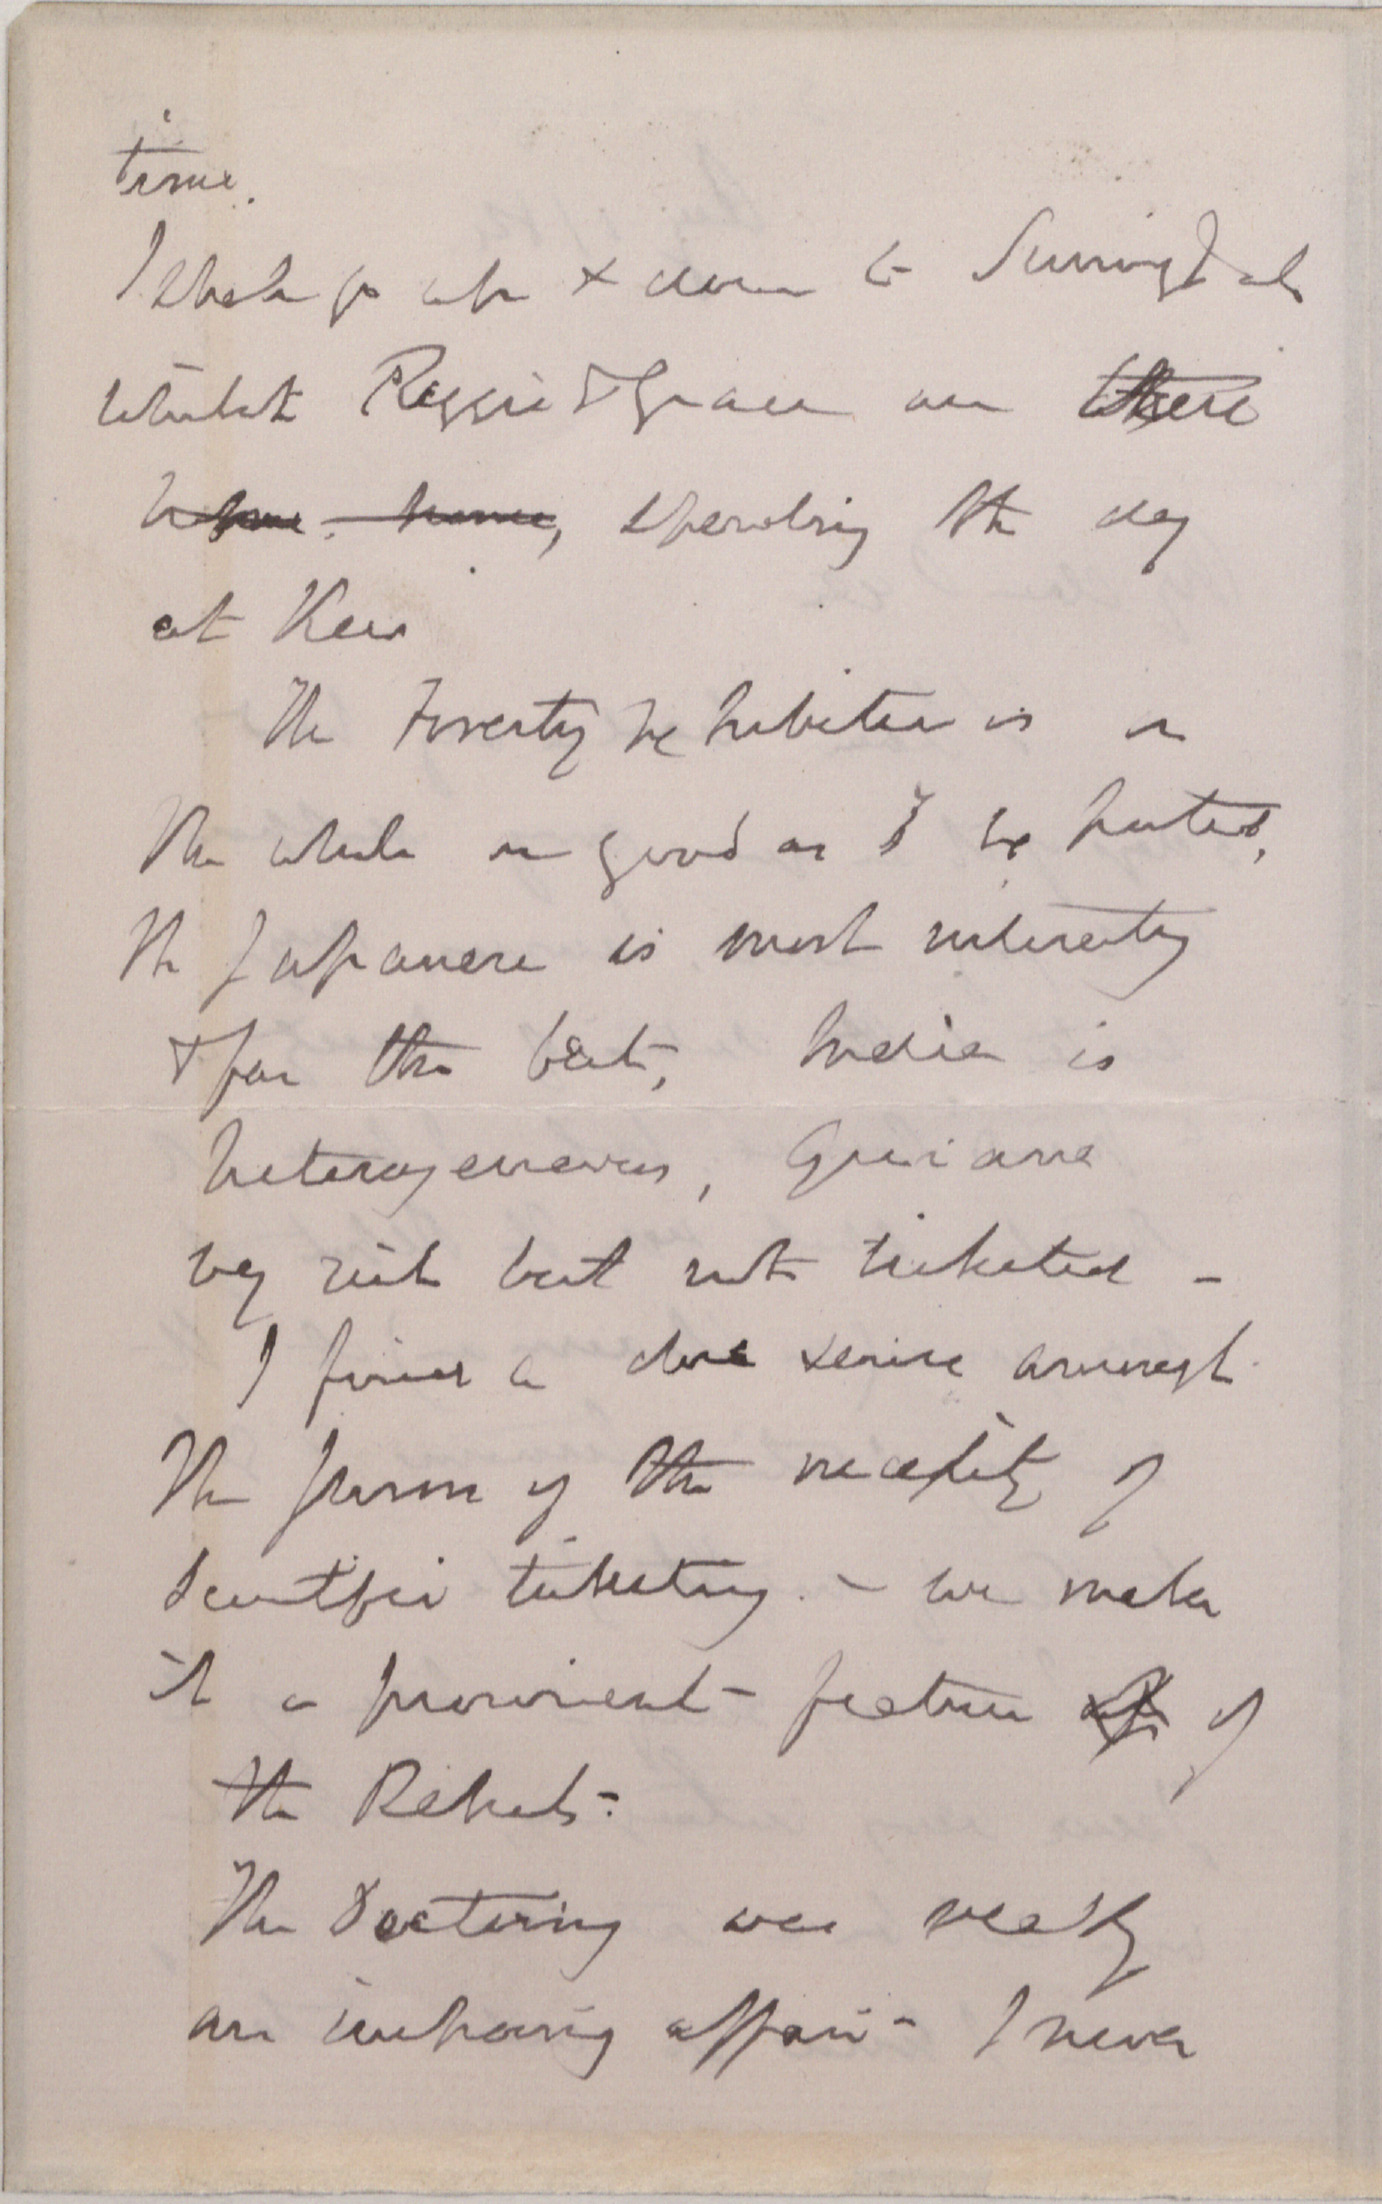 time.
I shall go up & down to Sunningdale
whilst Reggie & Grace are there
home. home, spending the day
at Kew
The Forestry Exhibition is on
the whole as good as I expected,
the Japanese is most interesting
& far the best, India is
heterogeneous, Guiana
very rich but not ticketed -
I find a dire sense amongst
the Jurors of the necessity of
Scientific ticketing. - we make
it a prominent feature of
the Report -
The Doctoring was really
an imposing affair - I never